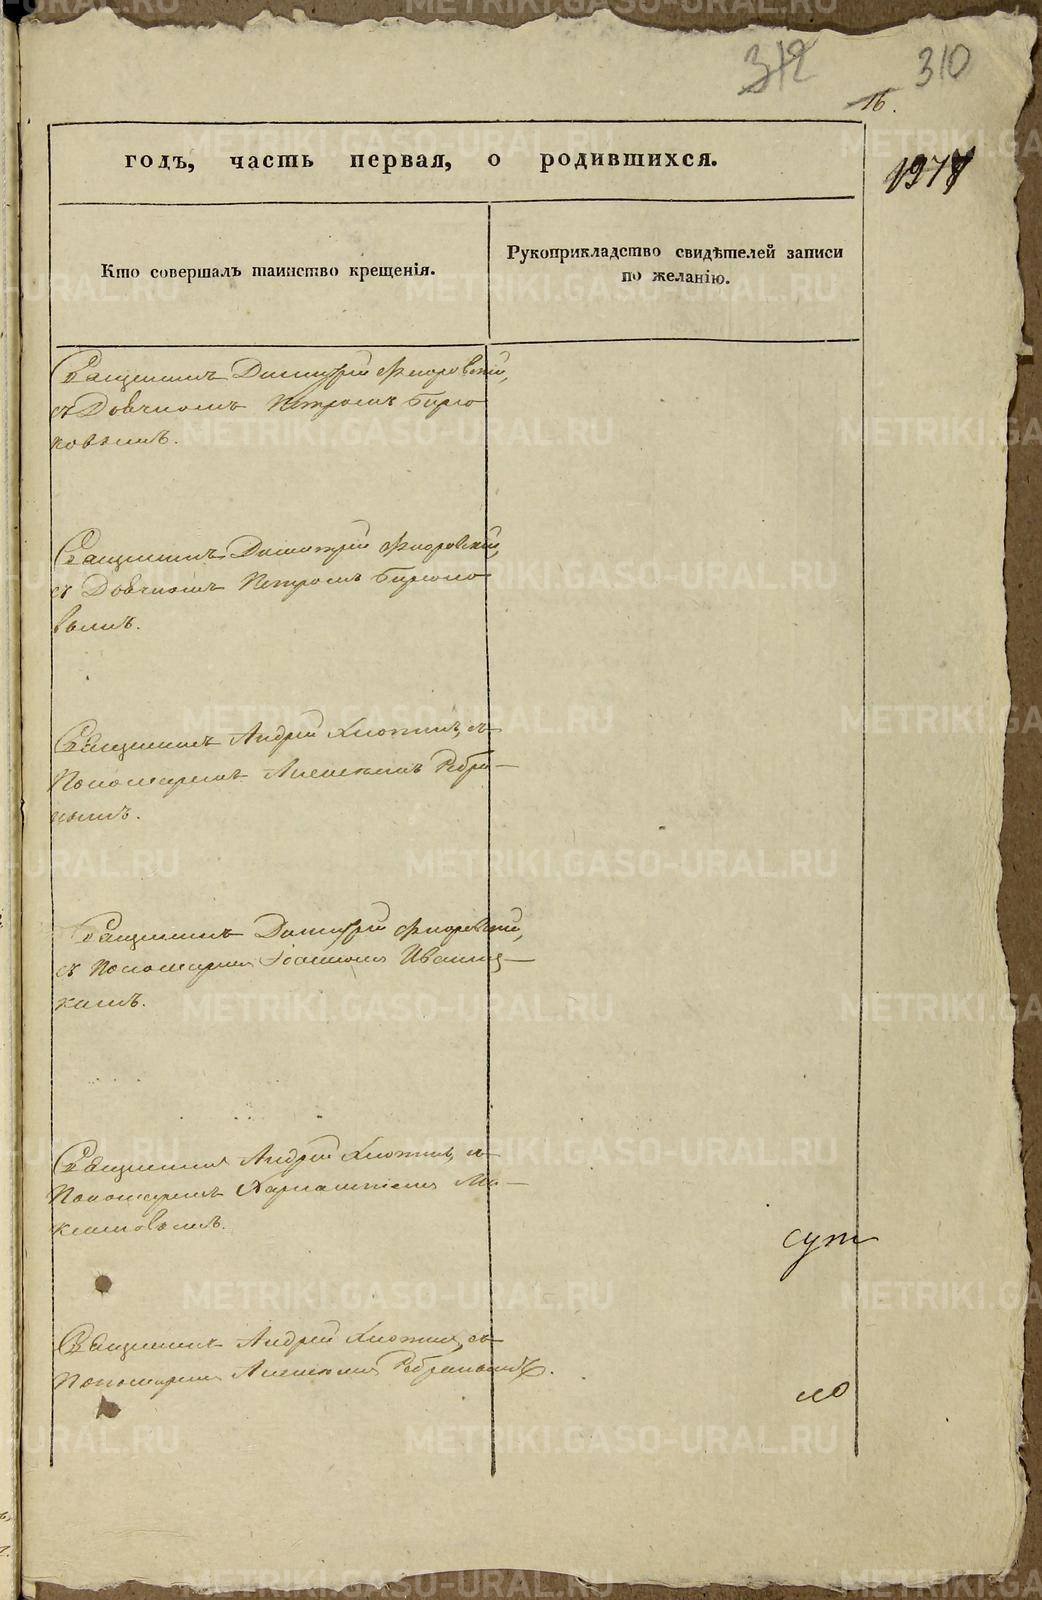 312 310
16.
годъ, часть первая, о родившихся.
Кто совершалъ таинство крещенія.
Рукоприкладство свидѣтелей записи
по желанію.
Священникъ Димитрій Флоровскій,
съ Дьячкомъ Петромъ Бирю
ковымъ.
Священникъ Димитрій Флоровскій,
съ Дьячкомъ Петромъ Бирюко
вымъ.
Священникъ Андрей Хлотинъ, съ
Пономаремъ Алексѣемъ Ребри-
цымъ.
Священникъ Димитрій Флоровскій,
съ Пономаремъ Іоанномъ Иваниц-
кимъ.
Священникъ Андрей Хлотинъ, съ
Пономаремъ Харлампіемъ Ма-
Священникъ Андрей Хлотинъ, съ
Пономаремъ Алексѣемъ
сут
но
METRIKI.GASO-URAL.RU